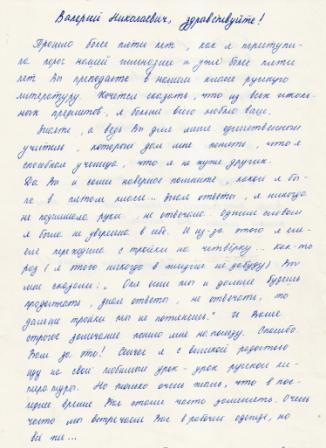 Валерий Николаевич, здравствуйте!
Прошло более пяти лет, как я переступи-
ла порог нашей гимназии и уже более пяти
лет Вы преподаете в нашем классе русскую
литературу. Хочется сказать, что из всех школь-
ных предметов, я больше всего люблю ваш.
Знаете, а ведь Вы для меня единственный
учитель, который дал мне понять, что я
способная ученица, что я не хуже других.
Да Вы и сами наверное помните, какой я бы-
ла в пятом классе... Зная ответы, я никогда
не поднимала руки не отвечала. Одним словом
я была не уверенна в себе. И из-за этого я еле-
еле переходила с тройки на четвёрку... Как-то
раз (я этого никогда в жизни не забуду) Вы
мне сказали: „ Оля если ты и дальше будешь
продолжать, зная ответы, не отвечать, то
дальше тройки ты не потянешь." И Ваше
строгое замечание пошло мне на пользу. Спасибо
Вам за это! Сейчас я с великой радостью
иду на свой любимый урок - урок русской ли-
тературы. Но только очень жаль, что в пос-
леднее время Вас стали часто заменять. Очень
часто мы встречаем Вас в рабочей одежде, но
вы те...